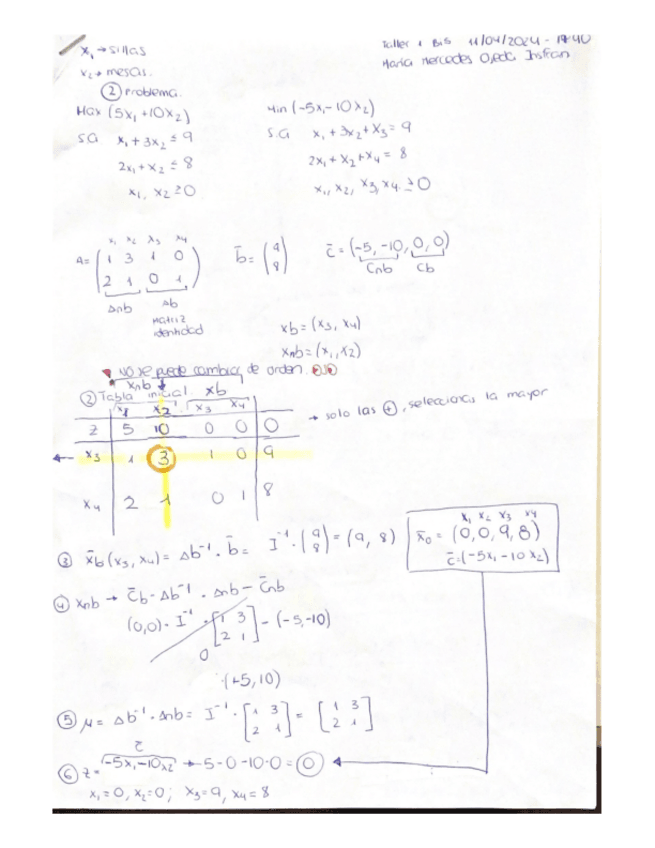 x₁ → sillas
x₂ → mesas.
Taller 1 Bis 11/04/2024 - 17:40
María Mercedes Ojeda Insfran
② Problema.
Max (5x₁+10x₂)
S.a x₁+3x₂ ≤ 9
2x₁+x₂ ≤ 8
x₁, x₂ ≥ 0
Min (-5x₁-10x₂)
S.a x₁+3x₂+x₃ = 9
2x₁+x₂+x₄ = 8
x₁, x₂, x₃, x₄ ≥ 0
x₁ x₂ x₃ x₄
A= (1 3 1 0
2 1 0 1)
Δnb Δb
matriz
identidad
b̄= (9
8)
c̄ = (-5, -10, 0, 0)
Cnb Cb
xb = (x₃, x₄)
xnb = (x₁, x₂)
NO se puede cambiar de orden.
xnb xb
② Tabla inicial
x₁ x₂ x₃ x₄
z 5 10 0 0 0
← x₃ 1 3 1 0 9
x₄ 2 1 0 1 8
→ solo las ⊕, selecciona la mayor
③ x̄b (x₃, x₄) = Δb⁻¹ . b̄ = I⁻¹ . (9
8) = (9, 8)
x₁ x₂ x₃ x₄
x̄₀ = (0, 0, 9, 8)
c̄=(-5x₁-10x₂)
④ xnb → C̄b . Δb⁻¹ . Δnb - C̄nb
(0,0) . I⁻¹ . [1 3
2 1] - (-5,-10)
0
(+5, 10)
⑤ μ = Δb⁻¹ . Δnb = I⁻¹ . [1 3
2 1] = [1 3
2 1]
c̄
⑥ z = -5x₁-10x₂ → -5·0-10·0 = 0
x₁=0, x₂=0; x₃=9, x₄=8